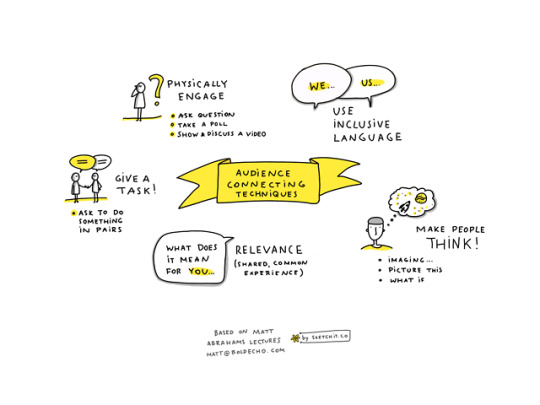 PHYSICALLY
ENGAGE
ASK QUESTION
TAKE A POLL
SHOW & DISCUSS A VIDEO
WE... US...
USE
INCLUSIVE
LANGUAGE
GIVE A
TASK!
ASK TO DO
SOMETHING
IN PAIRS
AUDIENCE
CONNECTING
TECHNIQUES
MAKE PEOPLE
THINK!
IMAGING...
PICTURE THIS
WHAT IF
WHAT DOES
IT MEAN
FOR YOU...
RELEVANCE
(SHARED, COMMON
EXPERIENCE)
BASED ON MATT
ABRAHAMS LECTURES
MATT@BOLDECHO.COM
by SKETCHIT.CO